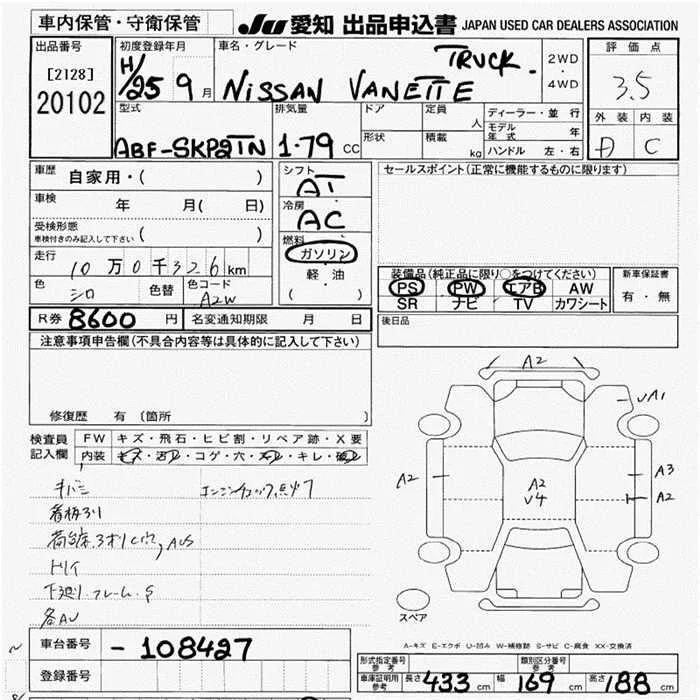 車内保管・守衛保管
JU 愛知 出品申込書 JAPAN USED CAR DEALERS ASSOCIATION
出品番号
[2128]
20102
初度登録年月
H/25 9 月
車名・グレード
NISSAN VANETTE TRUCK.
2WD
・
4WD
評価点
3.5
外装 内装
A C
型式
ABF-SKP2TN
排気量
1.79 CC
ドア
形状
定員
人
積載
kg
ディーラー・並行
モデル年式 年
ハンドル 左・右
車歴 自家用・( )
車検 年 月( 日)
受検形態
車検付きのみ記入して下さい ( )
走行
10 万 0 千 326 km
色 シロ 色替 色コード A2W
シフト
AT
冷房
AC
燃料
ガソリン
軽・油
( )
セールスポイント(正常に機能するものに限ります)
装備品(純正品に限り○をつけてください)
PS PW エアB AW
SR ナビ TV カワシート
新車保証書
有・無
R券 8600 円 名変通知期限 月 日
後日品
注意事項申告欄(不具合内容等は具体的に記入して下さい)
修復歴 有 〔箇所 〕
検査員記入欄
FW キズ・飛石・ヒビ割・リペア跡・X要
内装 キズ・汚レ・コゲ・穴・スレ・キレ・破レ
エンジンチェック点灯
下廻り.フレーム.S
各AU
A2
UA1
A2
A3
A2
A2
U4
スペア
A-キズ E-エクボ U-凹み W-補修跡 S-サビ C-腐食 XX-交換済
車台番号 - 108427
登録番号
形式指定番号
参考
類別区分番号
参考
車庫証明用
参考
長さ 433 cm 幅 169 cm 高さ 188 cm